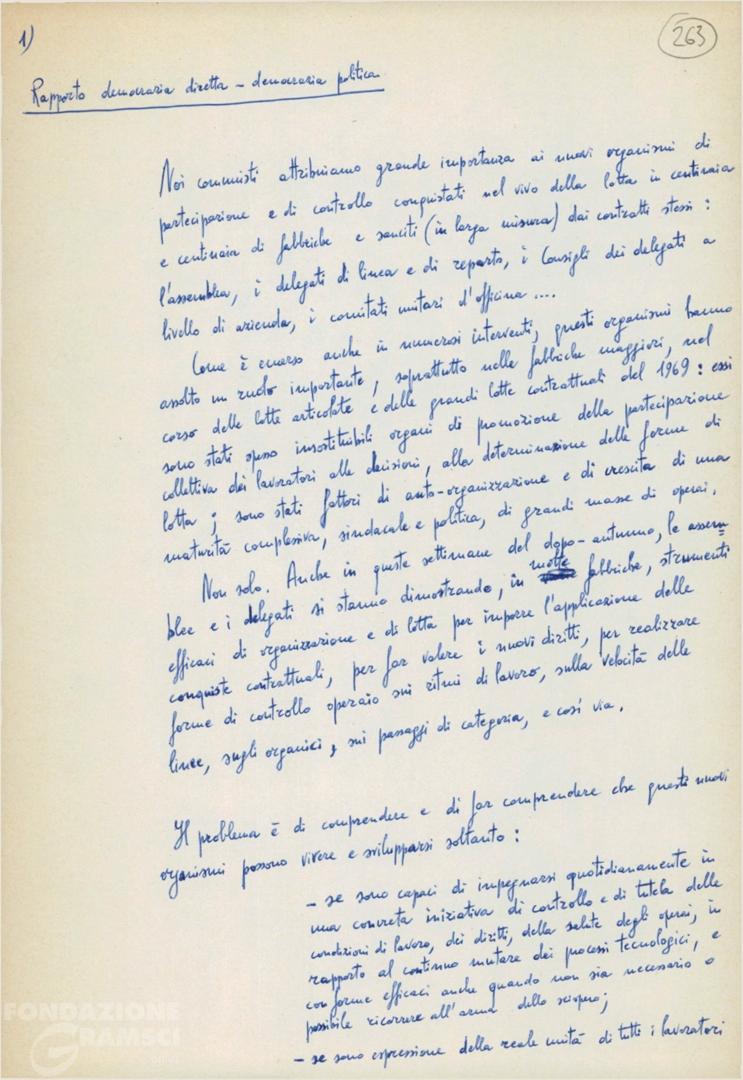 1)
263
Rapporto democrazia diretta – democrazia politica
Noi comunisti attribuiamo grande importanza ai nuovi organismi di
partecipazione e di controllo conquistati nel vivo della lotta in centinaia
e centinaia di fabbriche e sanciti (in larga misura) dai contratti stessi :
l'assemblea, i delegati di linea e di reparto, i Consigli dei delegati a
livello di azienda, i comitati unitari d'officina ....
Come è emerso anche in numerosi interventi, questi organismi hanno
assolto un ruolo importante, soprattutto nelle fabbriche maggiori, nel
corso delle lotte articolate e delle grandi lotte contrattuali del 1969 : essi
sono stati spesso insostituibili organi di promozione della partecipazione
collettiva dei lavoratori alle decisioni, alla determinazione delle forme di
lotta ; sono stati fattori di auto-organizzazione e di crescita di una
maturità complessiva, sindacale e politica, di grandi masse di operai.
Non solo. Anche in queste settimane del dopo-autunno, le assem=
blee e i delegati si stanno dimostrando, in molte fabbriche, strumenti
efficaci di organizzazione e di lotta per imporre l'applicazione delle
conquiste contrattuali, per far valere i nuovi diritti, per realizzare
forme di controllo operaio sui ritmi di lavoro, sulla velocità delle
linee, sugli organici, sui passaggi di categoria, e così via.
Il problema è di comprendere e di far comprendere che questi nuovi
organismi possono vivere e svilupparsi soltanto :
– se sono capaci di impegnarsi quotidianamente in
una concreta iniziativa di controllo e di tutela delle
condizioni di lavoro, dei diritti, della salute degli operai, in
rapporto al continuo mutare dei processi tecnologici, e
con forme efficaci anche quando non sia necessario o
possibile ricorrere all'arma dello sciopero;
– se sono espressione della reale unità di tutti i lavoratori
FONDAZIONE
GRAMSCI